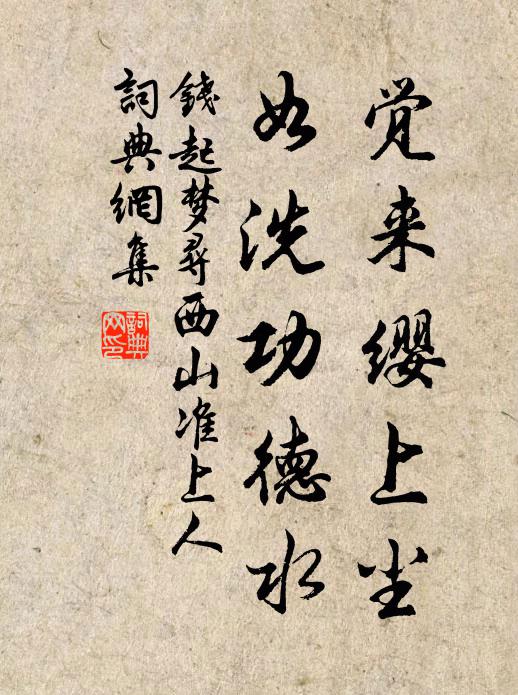 觉来缨上尘
如洗功德水
錢起梦尋西山准上人
詞典網集
詞典
网印